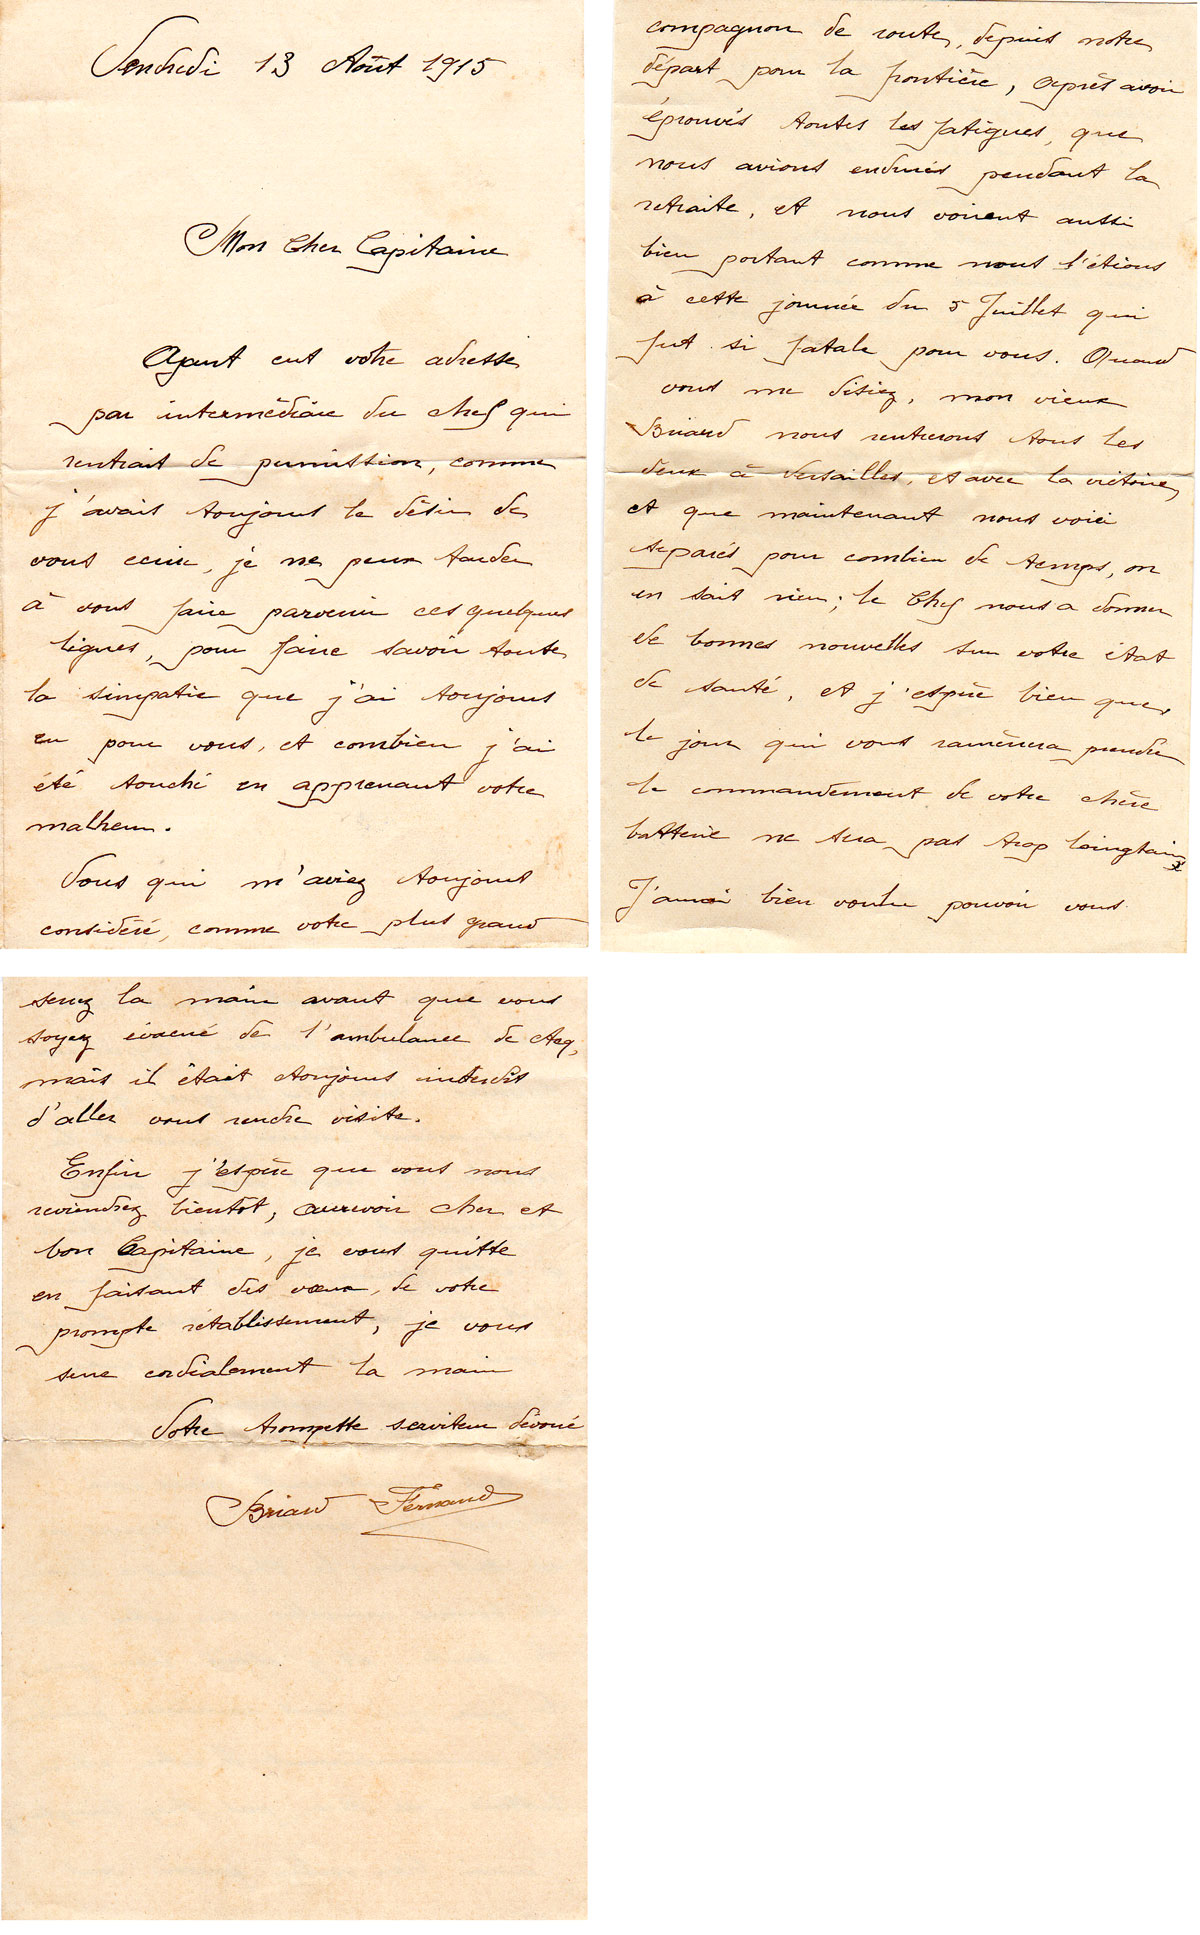 Vendredi 13 Août 1915
Mon Cher Capitaine
Ayant eut votre adresse
par intermédiaire du chef qui
rentrait de permission, comme
j'avais toujours le désir de
vous ecrir, je ne peux tarder
à vous faire parvenir ces quelques
lignes, pour faire savoir toute
la simpatie que j'ai toujours
eu pour vous, et combien j'ai
été touché en apprenant votre
malheur.
Vous qui m'aviez toujours
considéré, comme votre plus grand
compagnon de route, depuis notre
départ pour la frontière, après avoir
éprouvés toutes les fatigues, que
nous avions endurés pendant la
retraite, et nous voirent aussi
bien portant comme nous l'étions
à cette journée du 5 Juillet qui
fut si fatale pour vous. Quand
vous me disiez, mon vieux
Briard nous rentrerons tous les
deux à Versailles, et avec la victoire,
et que maintenant nous voici
séparés pour combien de temps, on
en sait rien; le Chef nous a donner
de bonnes nouvelles sur votre état
de santé, et j'espère bien que
le jour qui vous ramènera prendre
le commandement de votre chère
batterie ne sera pas trop loingtain
J'aurai bien voulu pouvoir vous
serrez la main avant que vous
soyez évacué de l'ambulance de Acq,
mais il était toujours interdit
d'aller vous rendre visite.
Enfin j'espère que vous nous
reviendrez bientôt, aurevoir cher et
bon Capitaine, je vous quitte
en faisant des vœux, de votre
prompte rétablissement, je vous
serre cordialement la main
Votre trompette serviteur dévoué
Briard Fernand